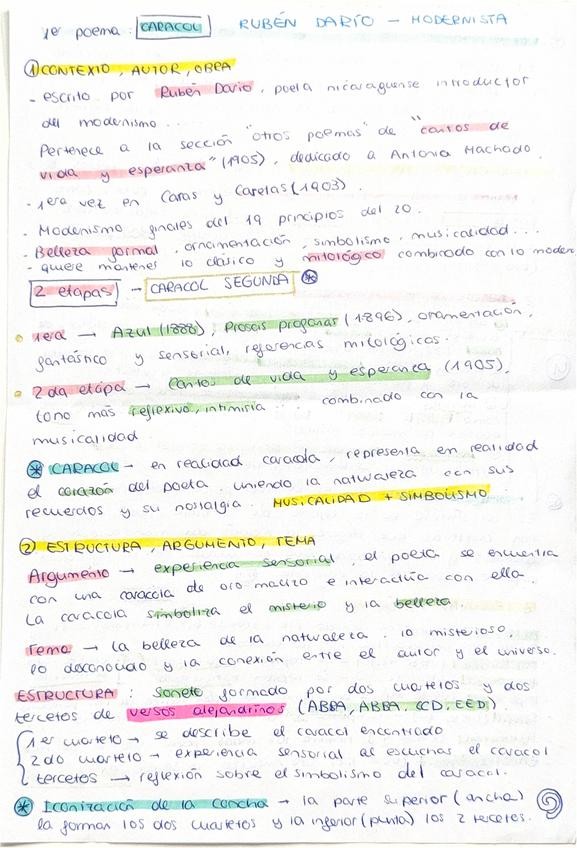 1er poema: CARACOL RUBÉN DARÍO - MODERNISTA
① CONTEXTO, AUTOR, OBRA
- escrito por Rubén Darío, poeta nicaraguense introductor
del modernismo...
Pertenece a la sección "otros poemas" de "cantos de
vida y esperanza" (1905), dedicado a Antonio Machado.
- 1era vez en Caras y Caretas (1903).
- Modernismo finales del 19 principios del 20.
- Belleza formal, ornamentación, simbolismo, musicalidad...
- quiere mantener lo clásico y mitológico combinado con lo moder
2 etapas → CARACOL SEGUNDA *
• 1era → Azul (1888), Prosas profanas (1896), ornamentación,
fantástico y sensorial, referencias mitológicas.
• 2da etapa → Cantos de vida y esperanza (1905),
tono más reflexivo, intimista... combinado con la
musicalidad
* CARACOL → en realidad caracola, representa en realidad
el corazón del poeta uniendo la naturaleza con sus
recuerdos y su nostalgia. MUSICALIDAD + SIMBOLISMO
② ESTRUCTURA, ARGUMENTO, TEMA
Argumento → experiencia sensorial, el poeta se encuentra
con una caracola de oro macizo e interactúa con ella.
La caracola simboliza el misterio y la belleza
Tema → la belleza de la naturaleza, lo misterioso,
lo desconocido y la conexión entre el autor y el universo.
ESTRUCTURA: Soneto formado por dos cuartetos y dos
tercetos de versos alejandrinos (ABBA, ABBA, CCD, EED)
1er cuarteto → se describe el caracol encontrado
2do cuarteto → experiencia sensorial al escuchar el caracol
tercetos → reflexión sobre el simbolismo del caracol.
* Iconización de la concha → la parte superior (ancha)
la forman los dos cuartetos y la inferior (punta) los 2 tercetos.